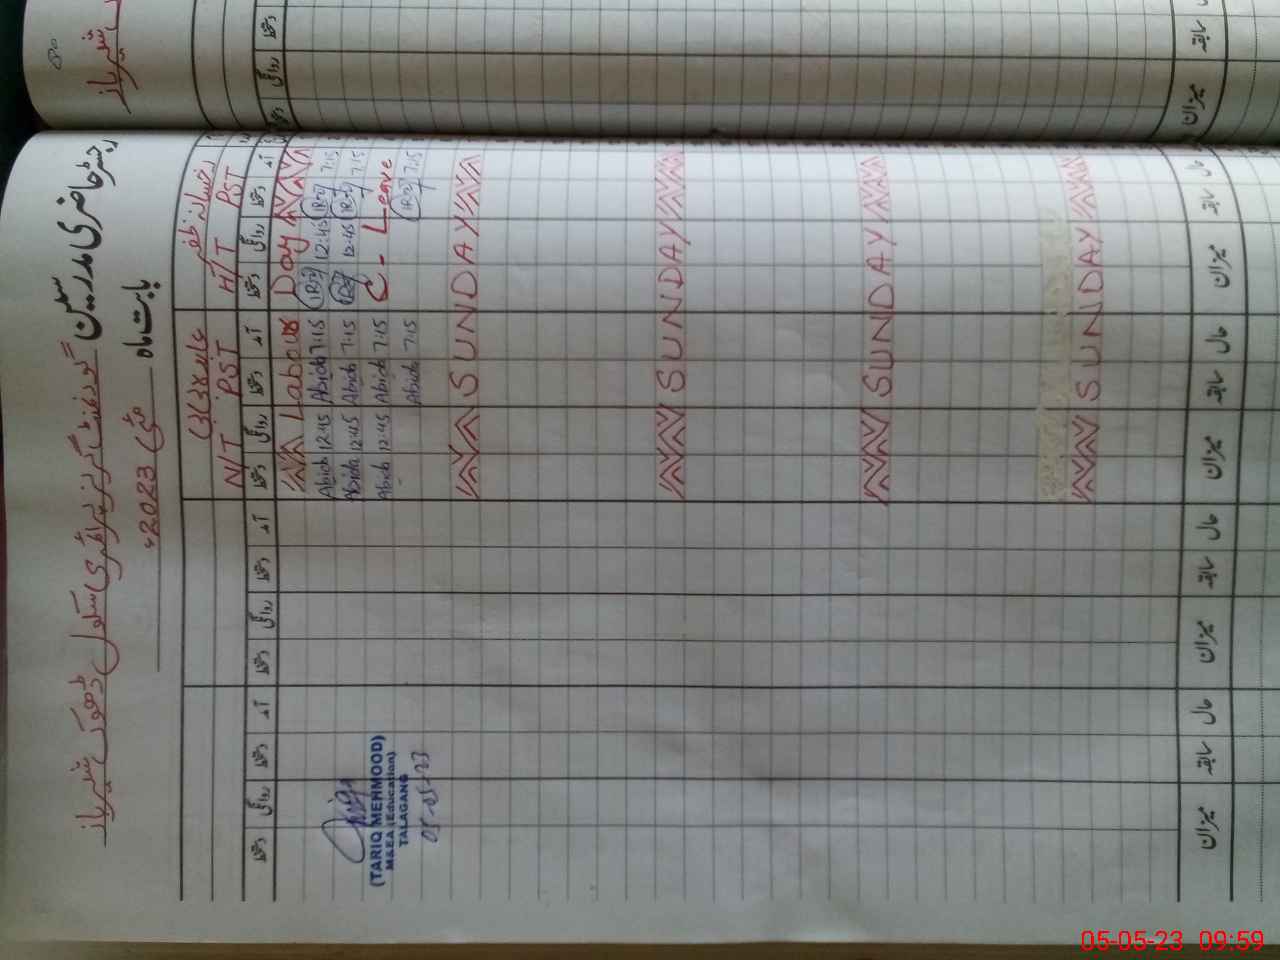 رجسٹر حاضری مدرسین گورنمنٹ گرلز پرائمری سکول ڈھوک شہباز
بابت ماہ مئی 2023ء
رخسانہ ظفر
H/T PST
N/T PST
آمد دستخط روانگی دستخط آمد دستخط روانگی دستخط آمد دستخط روانگی دستخط آمد دستخط روانگی دستخط
Labour Day
7:15 12:45 Abida 7:15 12:45 Abida
7:15 12:45 Abida 7:15 12:45 Abida
C - Leave Abida 7:15 12:45 Abida
7:15 Abida 7:15
SUNDAY
SUNDAY
SUNDAY
SUNDAY
حال سابقہ میزان حال سابقہ میزان حال سابقہ میزان حال سابقہ میزان
(TARIQ MEHMOOD)
M&EA (Education)
TALAGANG
05-05-23
05-05-23 09:59